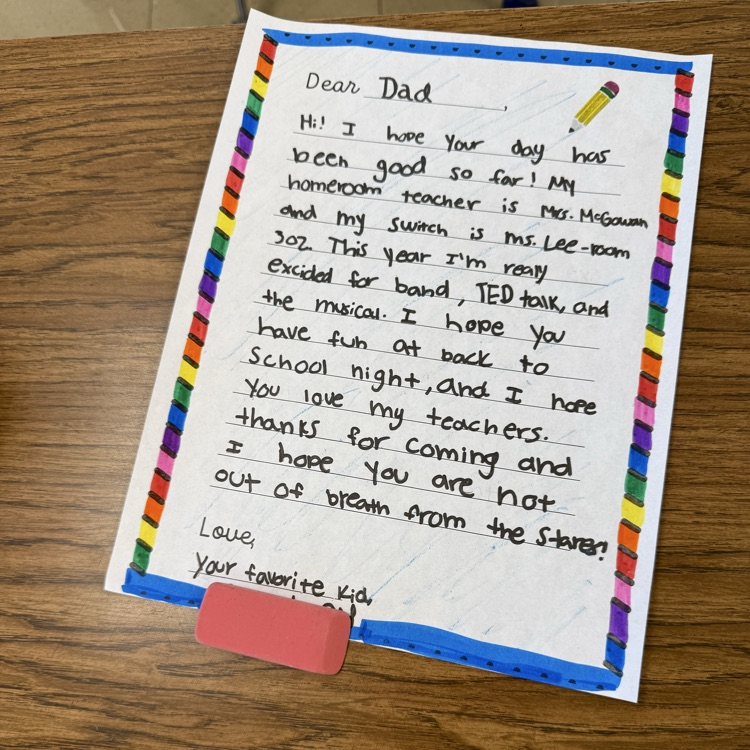 Dear Dad,
Hi! I hope your day has
been good so far! My
homeroom teacher is Mrs. McGowan
and my switch is ms. Lee-room
302. This year I'm realy
excided for band, TED talk, and
the musical. I hope you
have fun at back to
School night, and I hope
you love my teachers.
thanks for coming and
I hope you are not
out of breath from the stares!
Love,
your favorite kid,